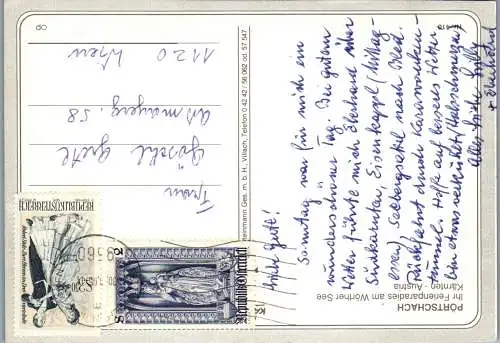 PÖRTSCHACH
Ihr Ferienparadies am Wörther See
Kärnten - Austria
Liebe Gretl!
Sonntag war für mich ein
wunderschöner Tag. Bei gutem
Wetter führte mich Eberhard über
Südkärnten, Eisenkappel (Mittag-
essen) Seebergsattel nach Bled.
Rückfahrt durch Karawanken-
tunnel. Hoffe auf besseres Wetter
bin etwas verkühlt (Halsschmerzen)
Alles Liebe
+ Eberhard
Ges. m. b. H., Villach, Telefon 0 42 42 / 56 062 od. 57 547
Frau
Gretl
58
1120 Wien
REPUBLIK ÖSTERREICH
S 50
Republik Österreich
5